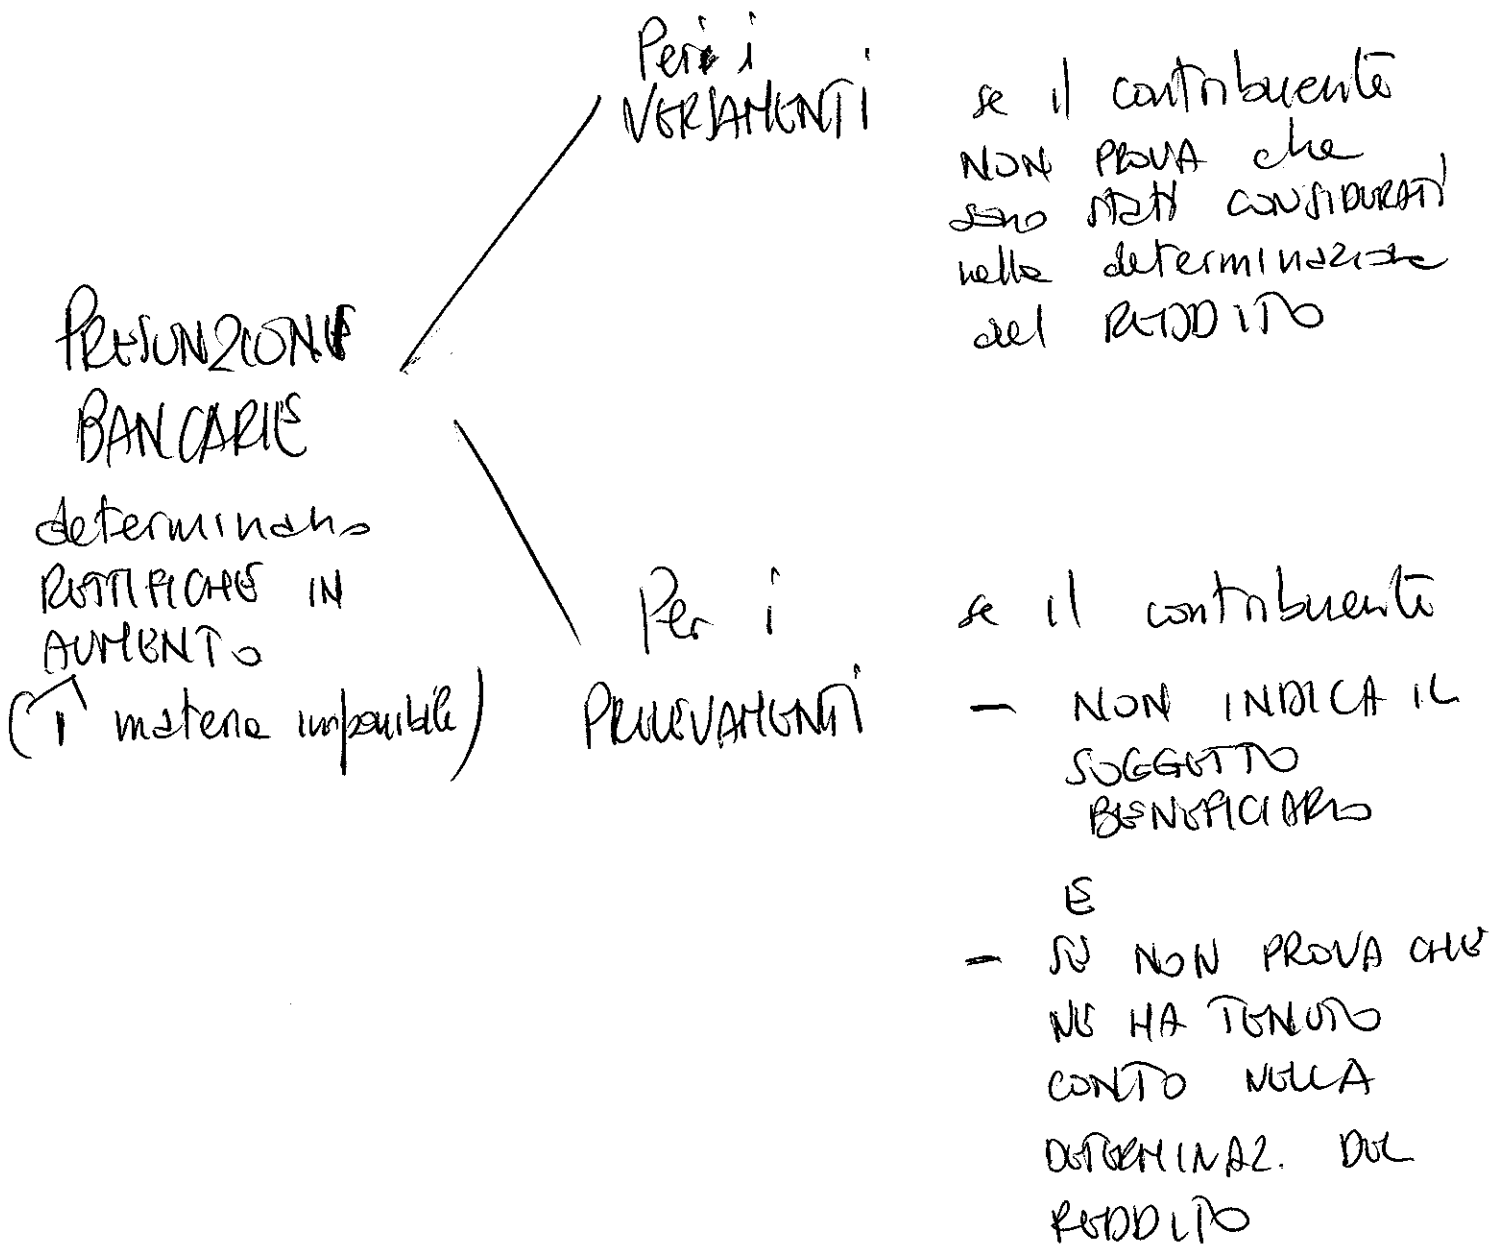 PRESUNZIONE
BANCARIE
determinano
RETTIFICHE IN
AUMENTO
(↑ materia imponibile)
Per i
VERSAMENTI
se il contribuente
NON PROVA che
sono stati CONSIDERATI
nella determinazione
del REDDITO
Per i
PRELEVAMENTI
se il contribuente
- NON INDICA IL
SOGGETTO
BENEFICIARIO
E
- SE NON PROVA CHE
NE HA TENUTO
CONTO NELLA
DETERMINAZ. DEL
REDDITO